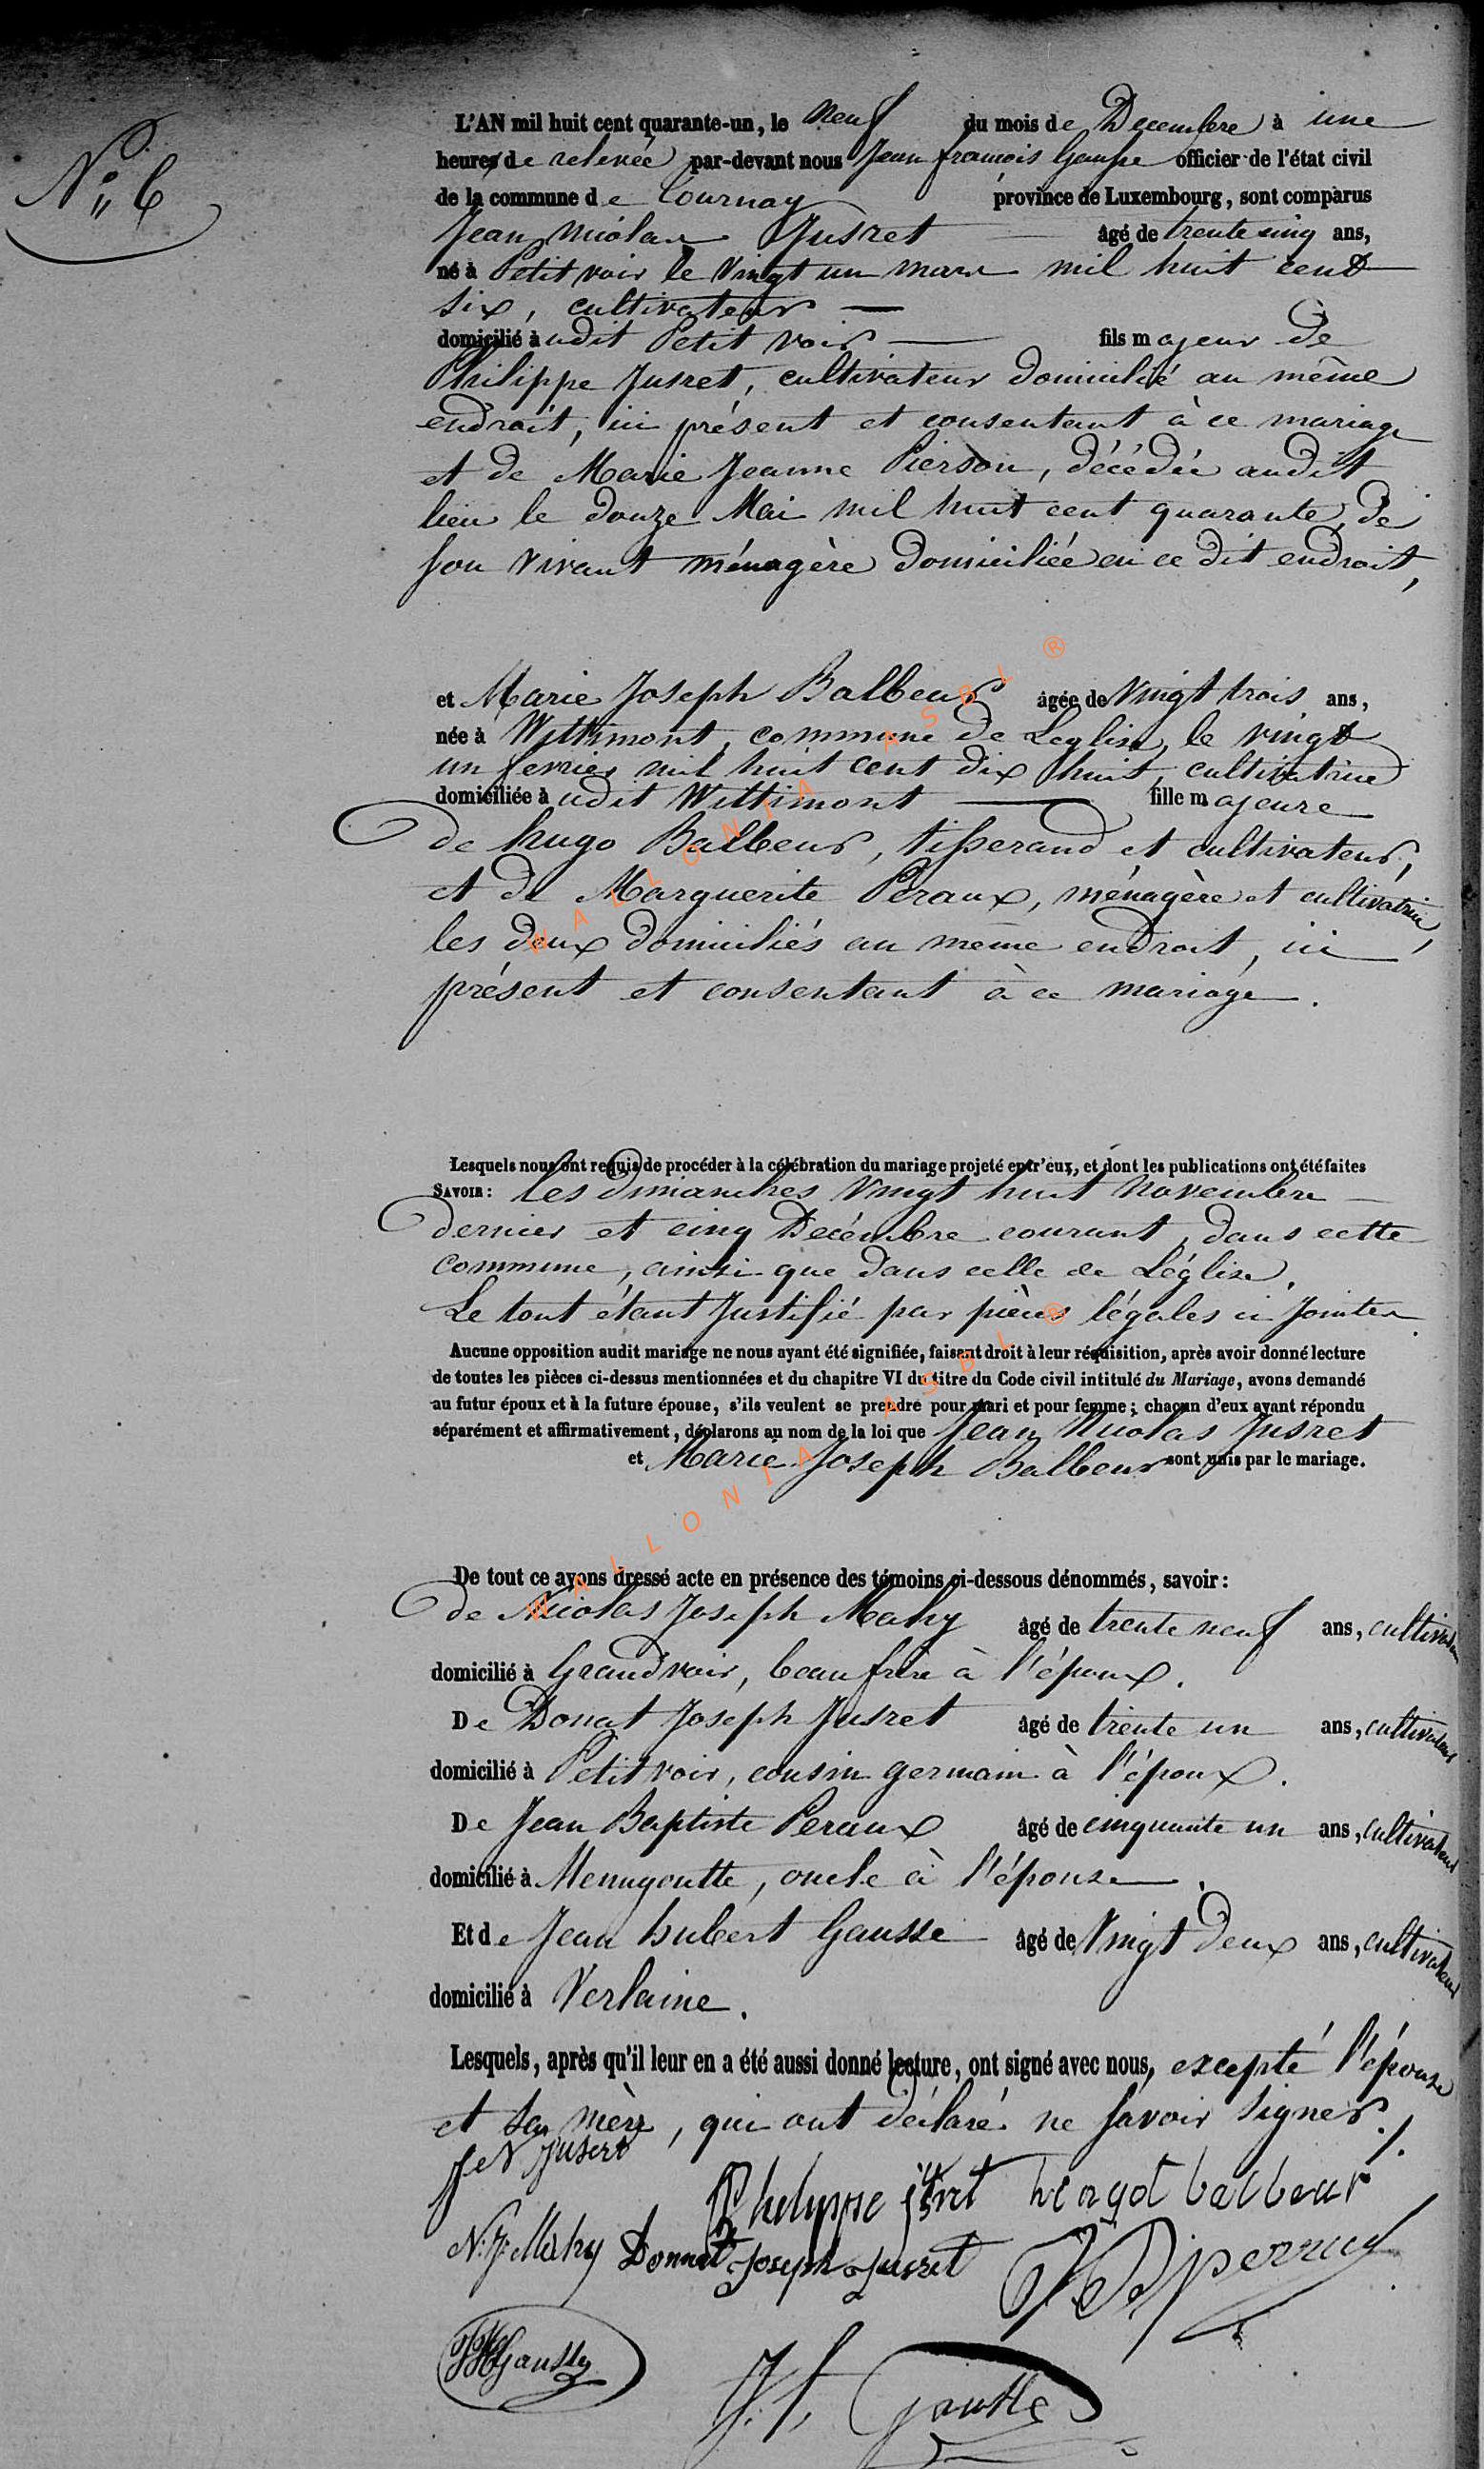 N° 6
L'AN mil huit cent quarante-un, le neuf du mois de Decembre à une
heures de relevée par-devant nous Jean françois Gausse officier de l'état civil
de la commune de Tournay province de Luxembourg, sont comparus
Jean Nicolas Jusret âgé de trente cinq ans,
né à Petitvoir le Vingt un mars mil huit cent
six, cultivateur
domicilié audit Petit voir fils majeur de
Philippe Jusret, cultivateur domicilié au même
endroit, ici présent et consentant à ce mariage
et de Marie Jeanne Pierson, décédée audit
lieu le douze Mai mil huit cent quarante, de
son vivant ménagère domiciliée en ce dit endroit,
et Marie Joseph Balbeur âgée de Vingt trois ans,
née à Wittimont, commune de Leglise, le vingt
un fevrier mil huit cent dix huit, cultivatrice
domiciliée audit Wittimont fille majeure
de hugo Balbeur, tisserand et cultivateur,
et de Marguerite Peraux, ménagère et cultivatrice,
les deux domiciliés au même endroit, ici
présent et consentant à ce mariage.
Lesquels nous ont requis de procéder à la célébration du mariage projeté entr'eux, et dont les publications ont été faites
SAVOIR: les dimanches Vingt huit Novembre
dernier et cinq Decembre courant, dans cette
commune, ainsi que dans celle de Léglise.
Le tout étant Justifié par pièces légales ci Jointes.
Aucune opposition audit mariage ne nous ayant été signifiée, faisant droit à leur réquisition, après avoir donné lecture
de toutes les pièces ci-dessus mentionnées et du chapitre VI du titre du Code civil intitulé du Mariage, avons demandé
au futur époux et à la future épouse, s'ils veulent se prendre pour mari et pour femme; chacun d'eux ayant répondu
séparément et affirmativement, déclarons au nom de la loi que Jean Nicolas Jusret
et Marie Joseph Balbeur sont unis par le mariage.
De tout ce avons dressé acte en présence des témoins ci-dessous dénommés, savoir:
de Nicolas Joseph Mahy âgé de trente neuf ans, cultivateur
domicilié à Grandvoir, beau frère à l'époux.
De Donat Joseph Jusret âgé de trente un ans, cultivateur
domicilié à Petitvoir, cousin germain à l'époux.
De Jean Baptiste Peraux âgé de cinquante un ans, cultivateur
domicilié à Menugoutte, oncle à l'épouse.
Et de Jean hubert Gausse âgé de Vingt deux ans, cultivateur
domicilié à Verlaine.
Lesquels, après qu'il leur en a été aussi donné lecture, ont signé avec nous, excepté l'épouse
et sa mère, qui ont déclaré ne savoir signer./.
J N Jusert
Phelippe jusret hugot balbeur
N. J. Mahy Donnat Joseph Jusret
JHGausse
J. f. Gausse
WALLONIA ASBL ®
WALLONIA ASBL ®